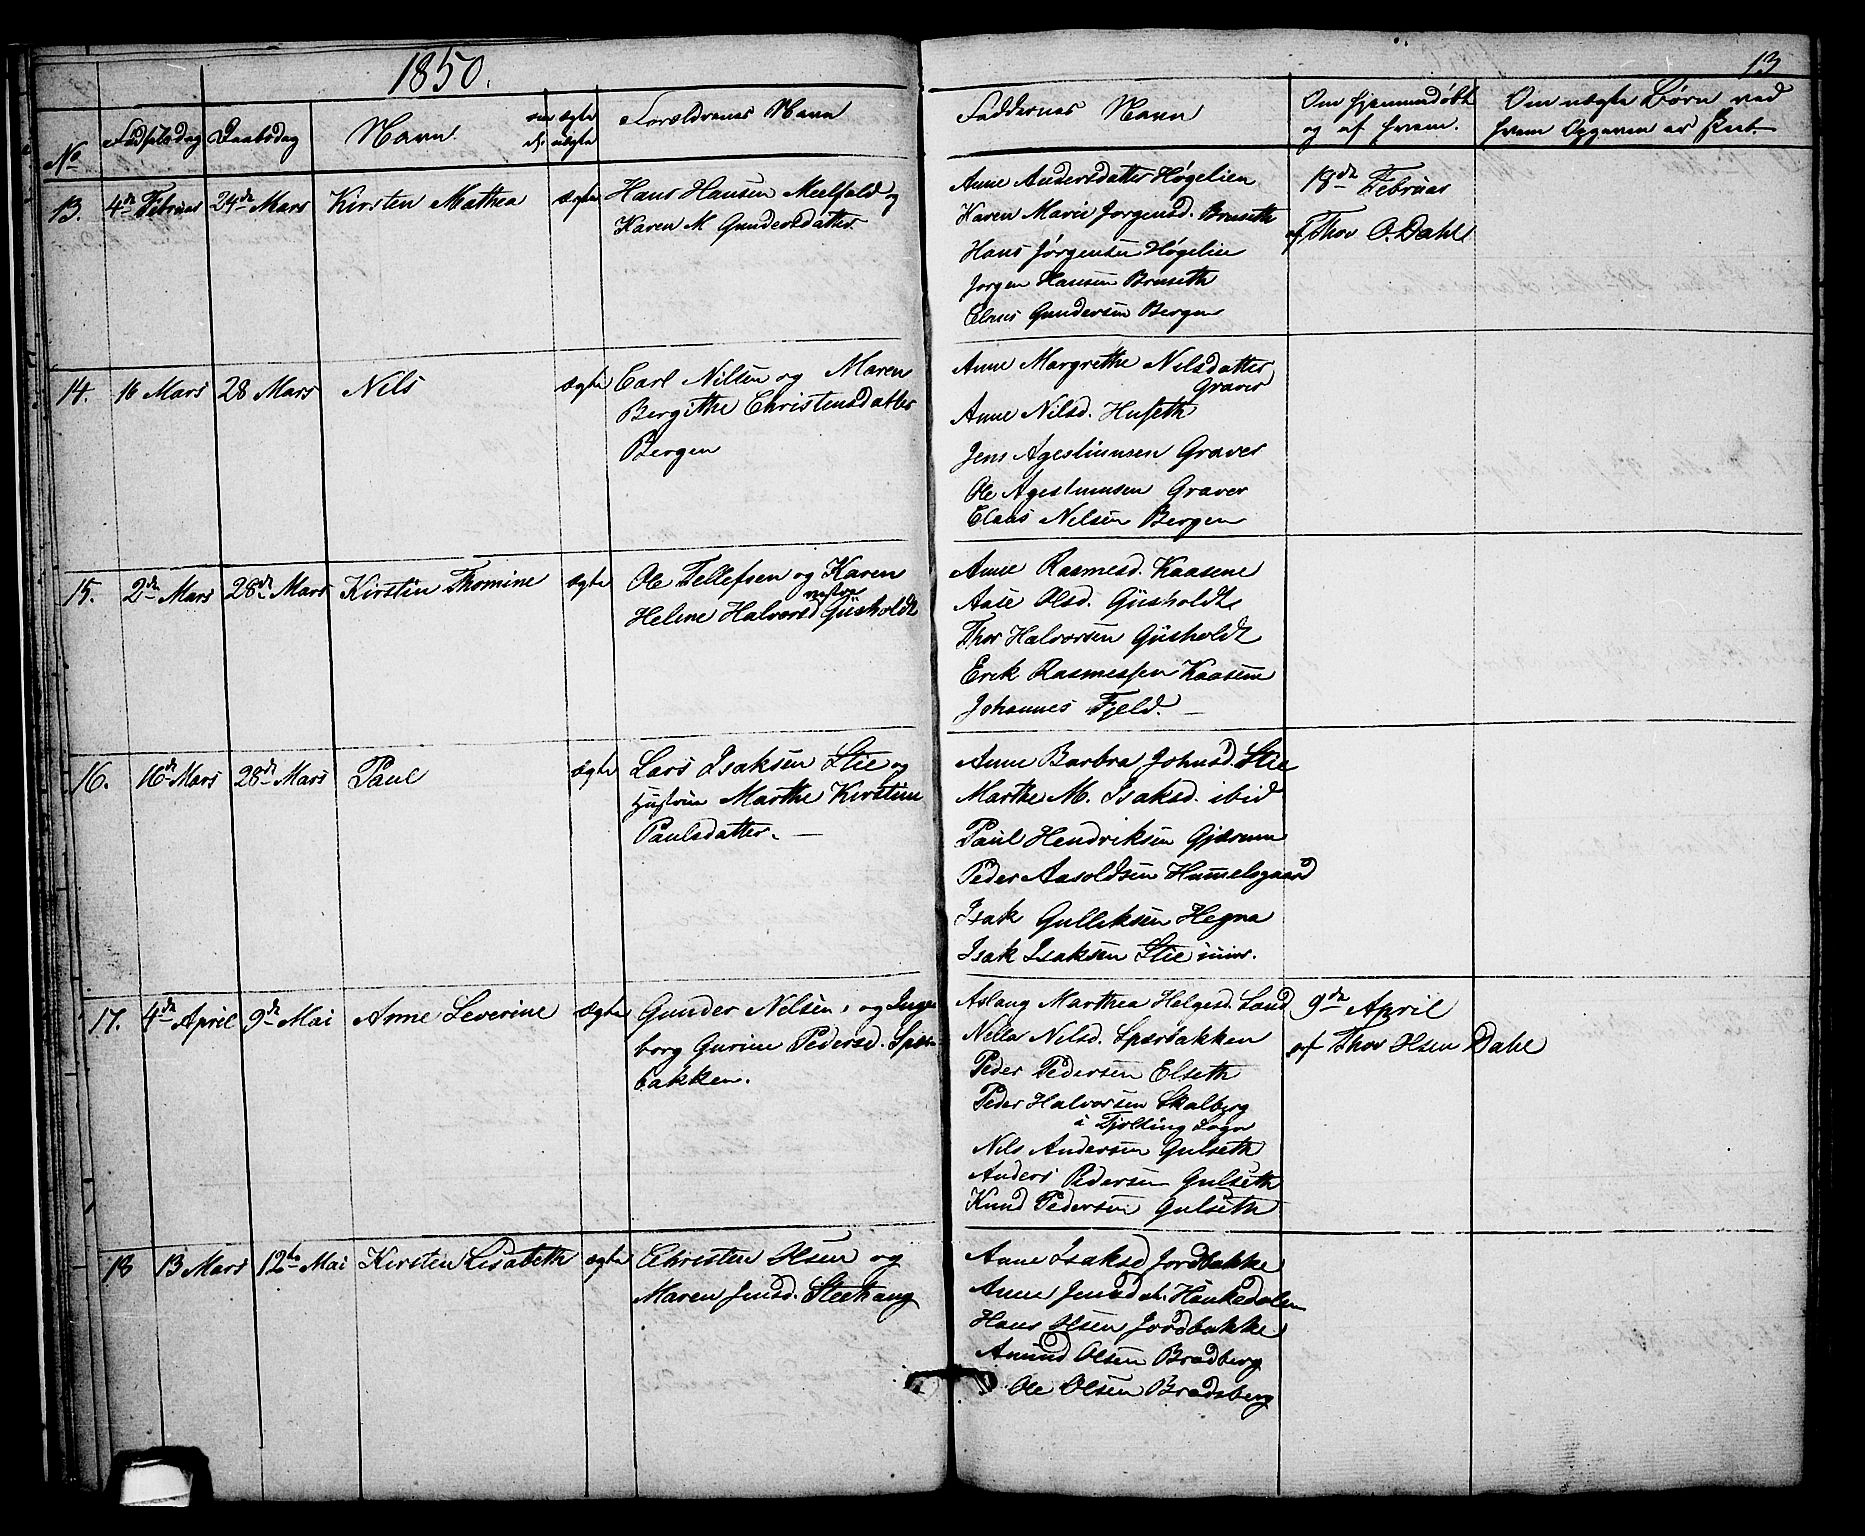 1850.
13
No
Fødselsdag
Daabsdag
Navn.
om ægte
el. uægte
Forældrenes Navn
Faddernes Navn
Om hjemmedøbt
og af hvem.
Om uægte Børn ved
hvem Opgaven er skeet.
13.
4de Februar
24de Mars
Kirsten Mathea
ægte
Hans Hansen Meelfald og
Karen M Gundersdatter.
Anne Andersdatter Høgelien
Karen Marie Jorgensd. Bruseth
Hans Jørgensen Høgelien
Jorgen Hansen Bruseth
Claus Gundersen Bergen
18de Februar
af Thov O. Dahl
14.
16 Mars
28 Mars
Nils
ægte
Carl Nilsen og Maren
Bergithe Christensdatter
Bergen
Anne Margrethe Nilsdatter
Graver
Anne Nilsd. Huseth
Jens Agestinusen Graver
Ole Agestinusen Graver
Claus Nilsen Bergen
15.
2de Mars
28de Mars
Kirstin Thomine
ægte
Ole Tellefsen og Karen
Helene Halvorsd nestre Giisholdt
Anne Rasmesd. Kaasene
Aase Olsd. Giisholdt
Thor Halvorsen Giisholdt
Erik Rasmessen Kaasene
Johannes Fjeld. —
16.
16de Mars
28de Mars
Paul
ægte
Lars Isaksen Stie og
Hustrue Marthe Kirstine
Paulsdatter. —
Anne Barbra Johnsd. Stie
Marthe M. Isaksd. ibid
Paul Hendriksen Gjærum
Peder Aasoldsen Hummelsgaard
Isak Gulleksen Hegna
Isak Isaksen Stie junior.
17.
4de April
9de Mai
Anne Severine
ægte
Gunder Nelsen, og Inge
borg Gurine Pedersd. Spær-
bakken.
Aslaug Marthea Helgesd. Sand
Nella Nilsd. Spærbakken
Peder Pedersen Elseth
Peder Halvorsen Skalberg
i Fjelling Sogn
Nils Andersen Gulseth
Anders Pedersen Gulseth
Knud Pedersen Gulseth
9de April
af Thov Olsen Dahl
18
13 Mars
12te Mai
Kirsten Lisabeth
ægte
Christen Olsen og
Maren Jensd. Steehaug
Anne Isaksd Jordbakke
Anne Jensdat. Haukedalen
Hans Olsen Jordbakke
Amund Olsen Bradberg
Ole Olsen Bradsberg